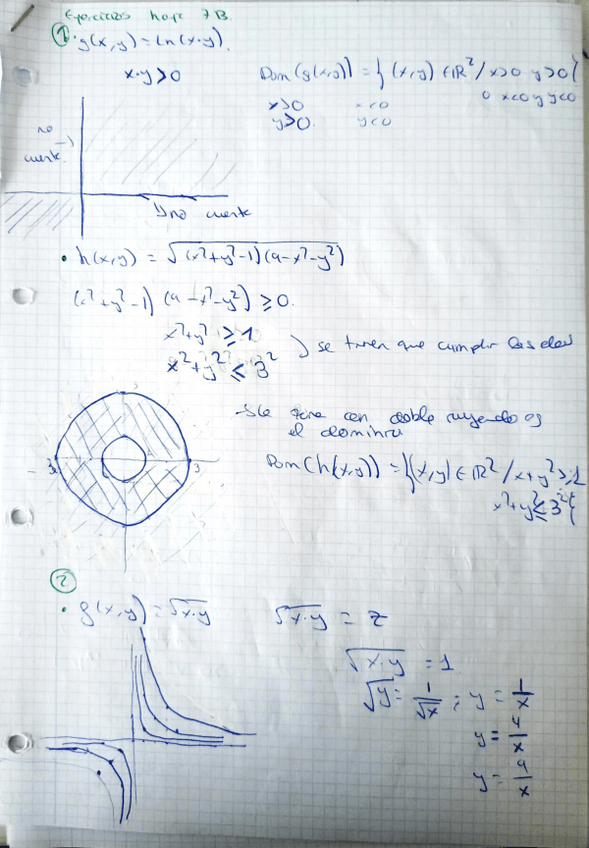 Ejercicios hoja 7B.
① · g(x,y) = Ln(x·y).
x·y > 0
Dom(g(x,y)) = { (x,y) ∈ ℝ² / x>0 y>0 }
o x<0 y y<0
x>0 x<0
y>0. y<0
no
cuenta
no cuenta
· h(x,y) = √(x²+y²-1)(9-x²-y²)
(x²+y²-1) (9-x²-y²) ≥ 0.
x²+y² ≥ 1
x²+y² ≤ 3²
se tienen que cumplir las dos
→ La zona con doble rayado es
el dominio
3 3
Dom(h(x,y)) = { (x,y) ∈ ℝ² / x+y² ≥ 1
x²+y² ≤ 3² }
②
· g(x,y) = √x·y
√x·y = z
√x·y = 1
√y = 1/√x ; y = 1/x
y = 4/x
y = 9/x